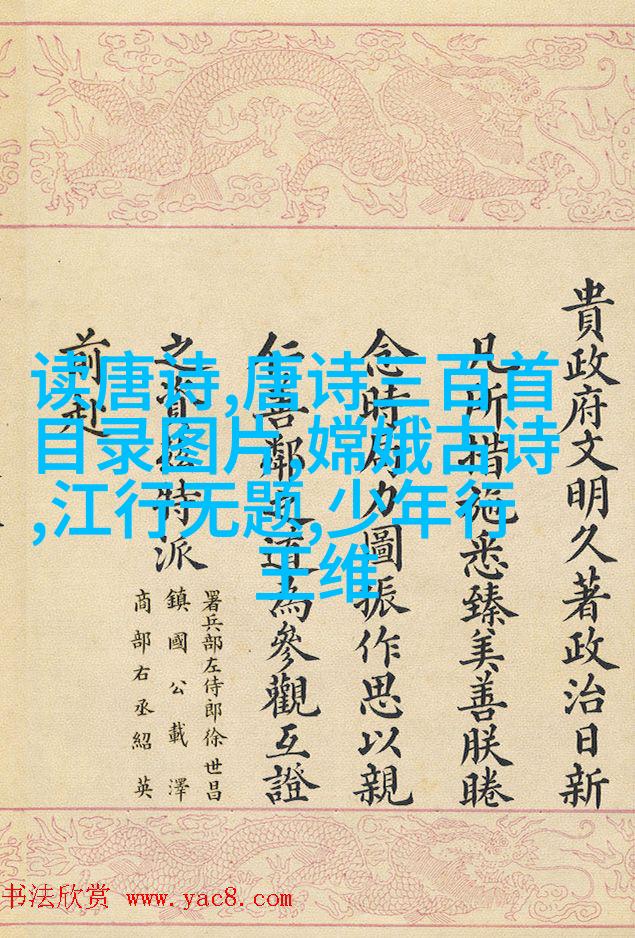 读唐诗,唐诗三百首
目录图片,嫦娥古诗
,江行无题,少年行
王维
貴政府文明久著政治日新
凡所措施悉臻美善朕睠
念時局力圖振作思以親
仁善鄰之道為參觀互證
之資茲特派
署兵部左侍郎徐世昌
鎮國公載澤
商部右丞紹英
前赴
书法欣赏 www.yac8.com